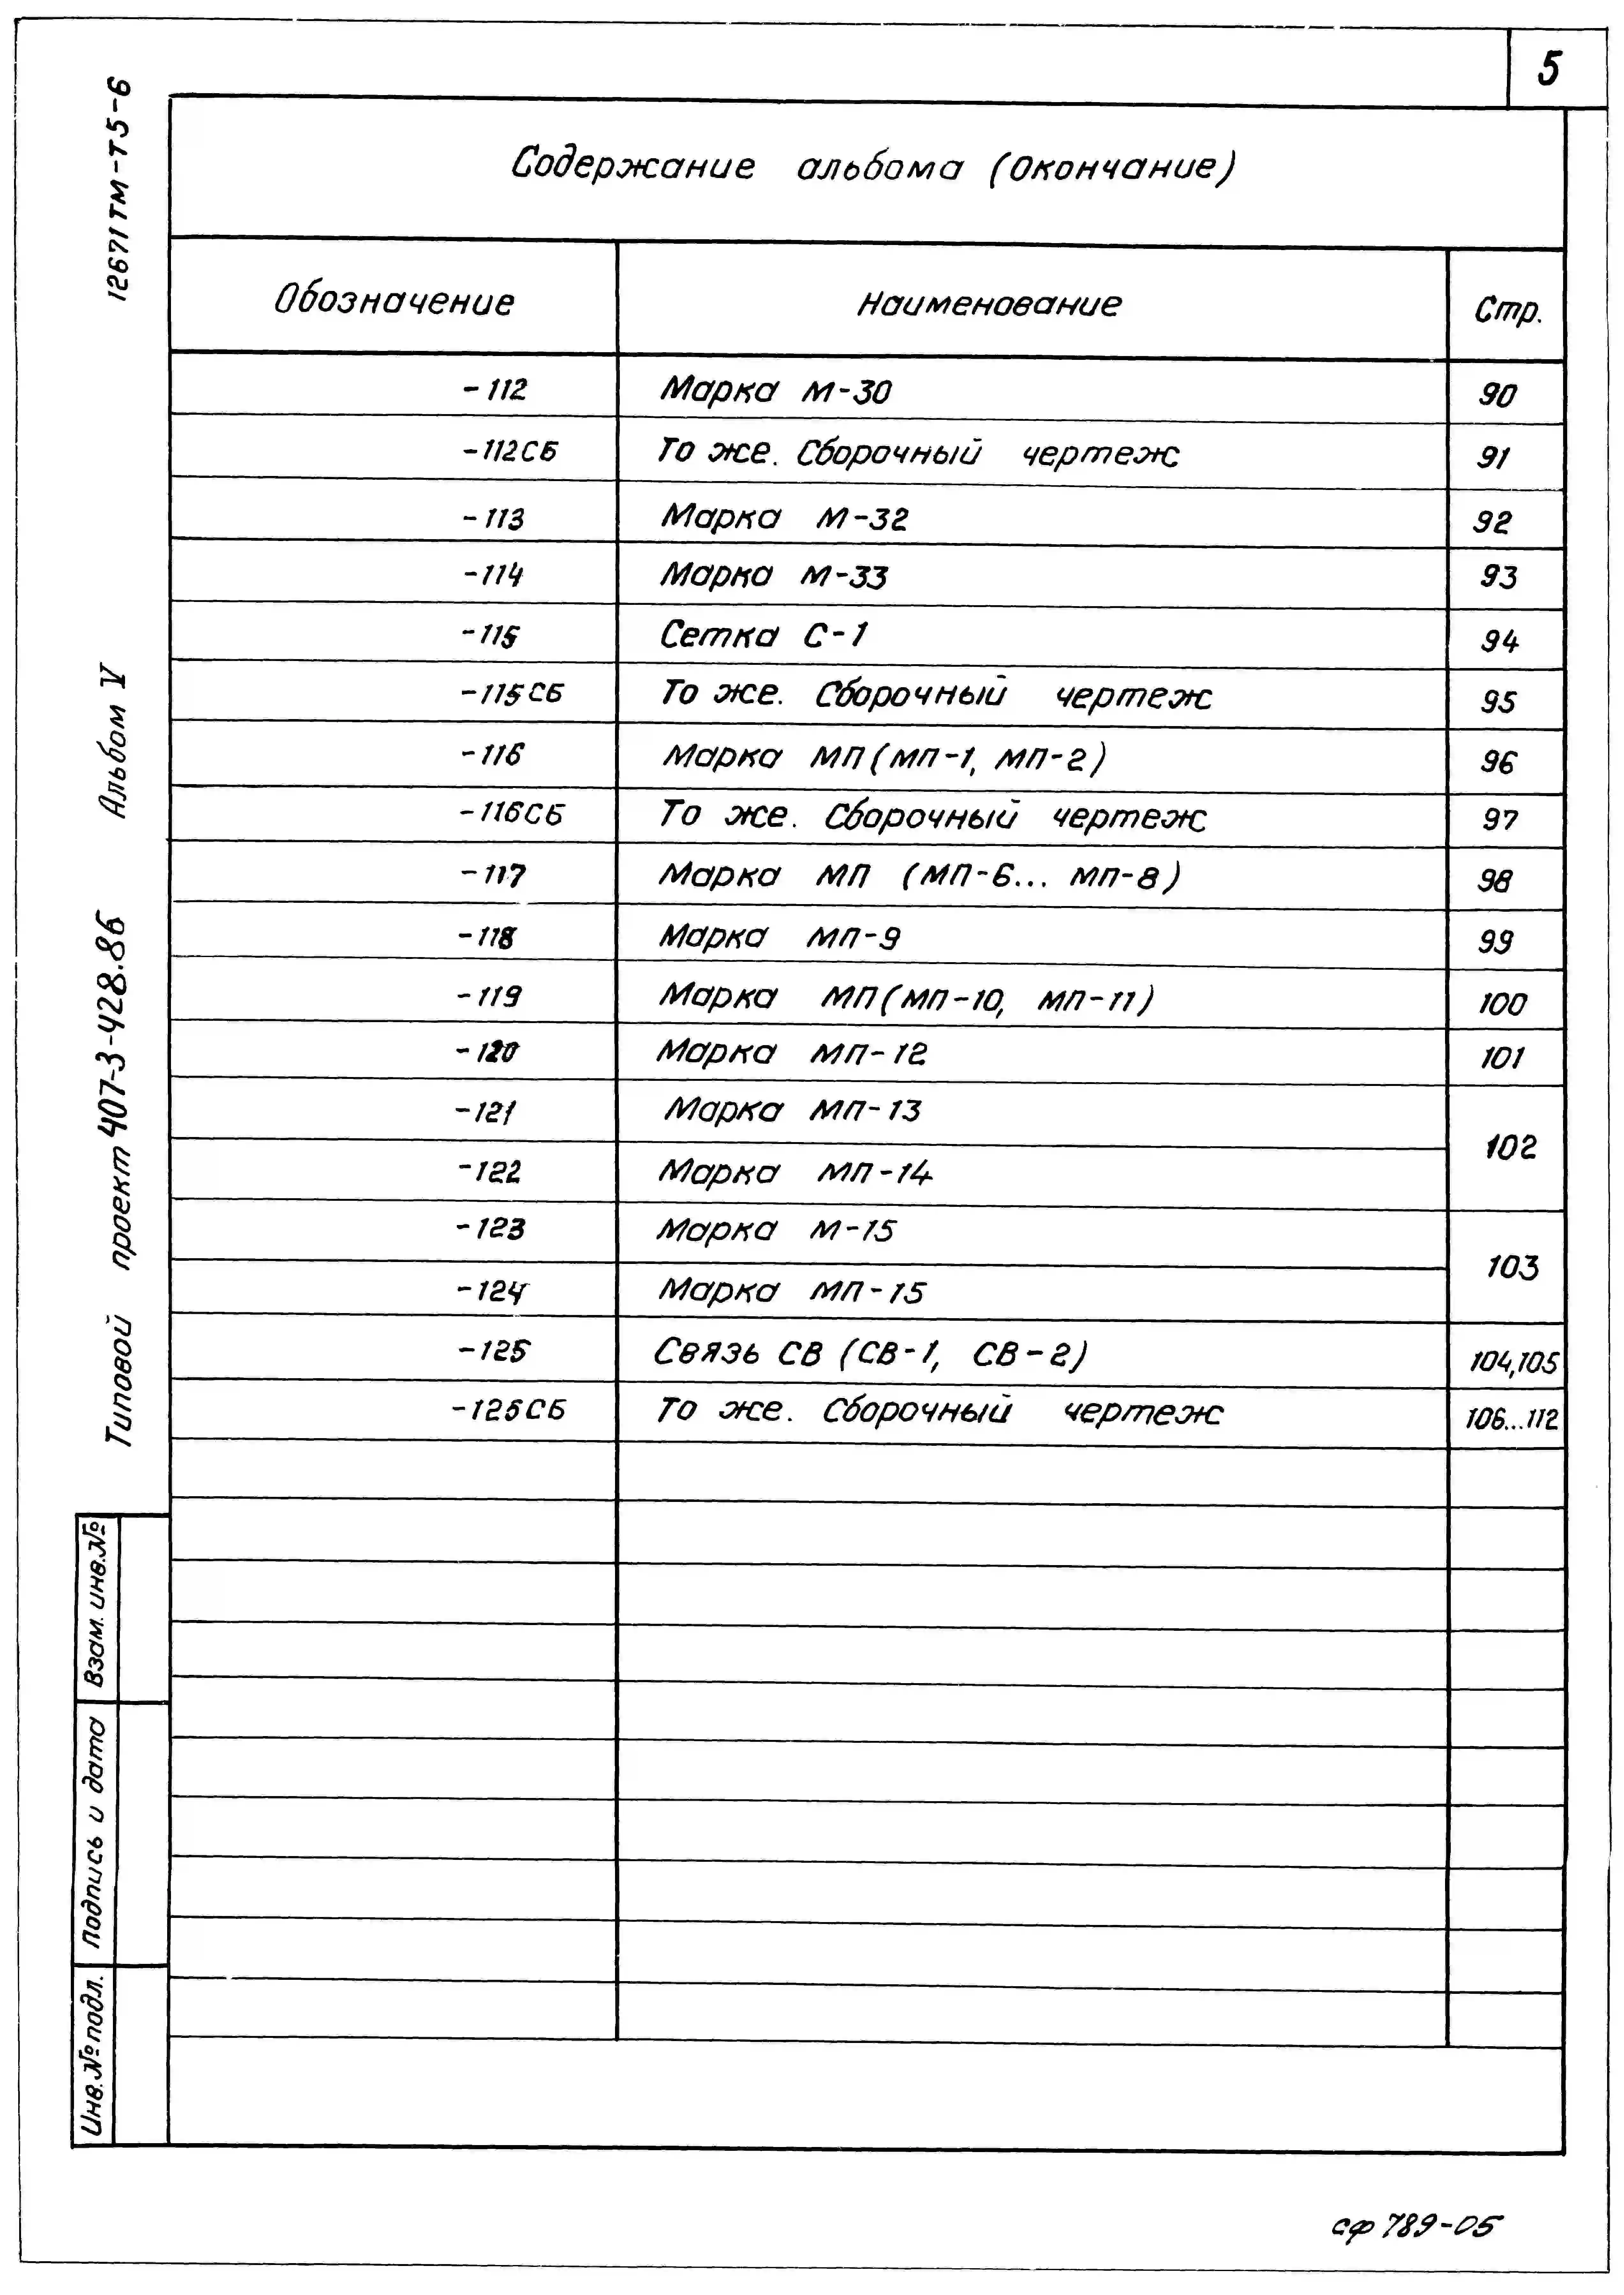 5
12671тм-т5-6
Альбом V
Типовой проект 407-3-428.86
Содержание альбома (Окончание)
Обозначение Наименование Стр.
-112 Марка М-30 90
-112СБ То же. Сборочный чертеж 91
-113 Марка М-32 92
-114 Марка М-33 93
-115 Сетка С-1 94
-115СБ То же. Сборочный чертеж 95
-116 Марка МП(МП-1, МП-2) 96
-116СБ То же. Сборочный чертеж 97
-117 Марка МП (МП-6... МП-8) 98
-118 Марка МП-9 99
-119 Марка МП(МП-10, МП-11) 100
-120 Марка МП-12 101
-121 Марка МП-13 102
-122 Марка МП-14
-123 Марка М-15 103
-124 Марка МП-15
-125 Связь СВ (СВ-1, СВ-2) 104,105
-125СБ То же. Сборочный чертеж 106...112
Взам. инв.№
Подпись и дата
Инв.№ подл.
сф 789-05